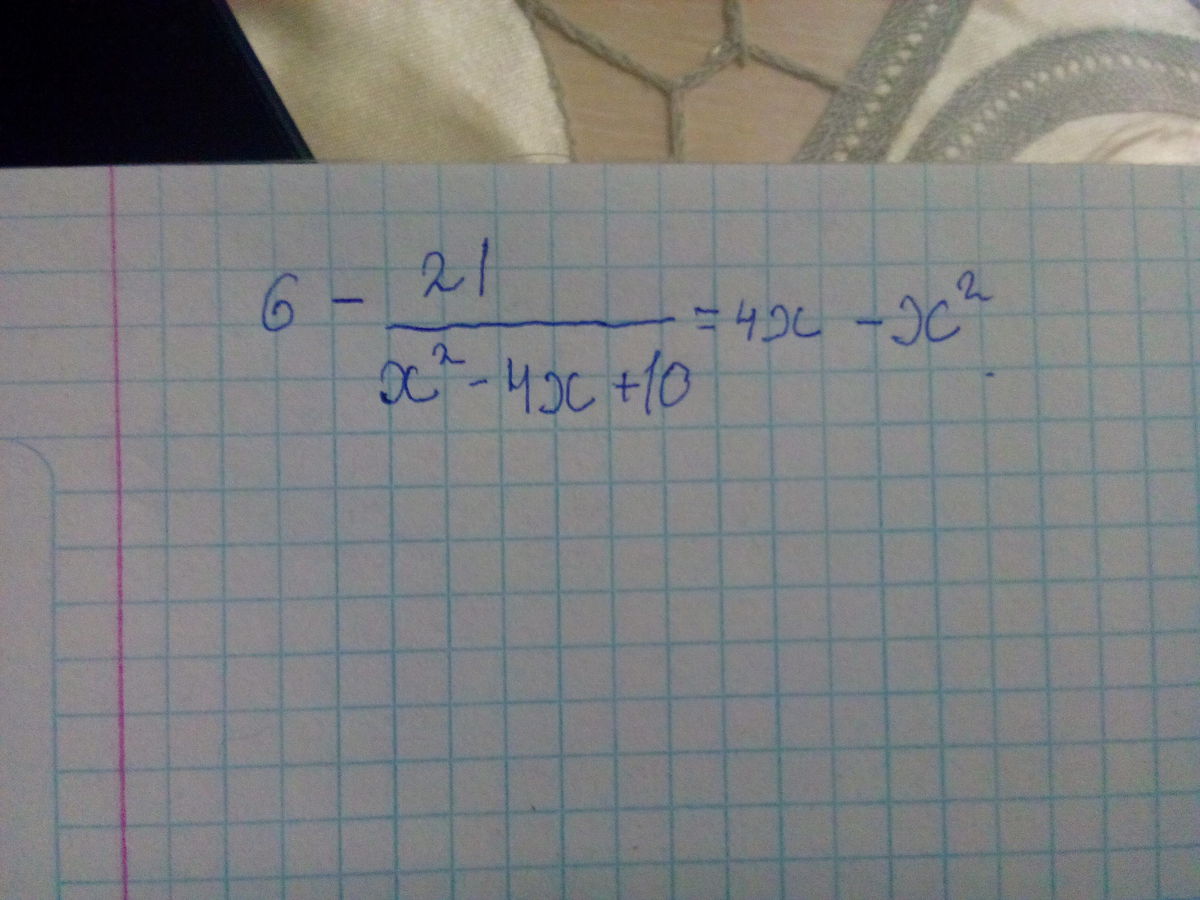 6 - 21/(x² - 4x + 10) = 4x - x²